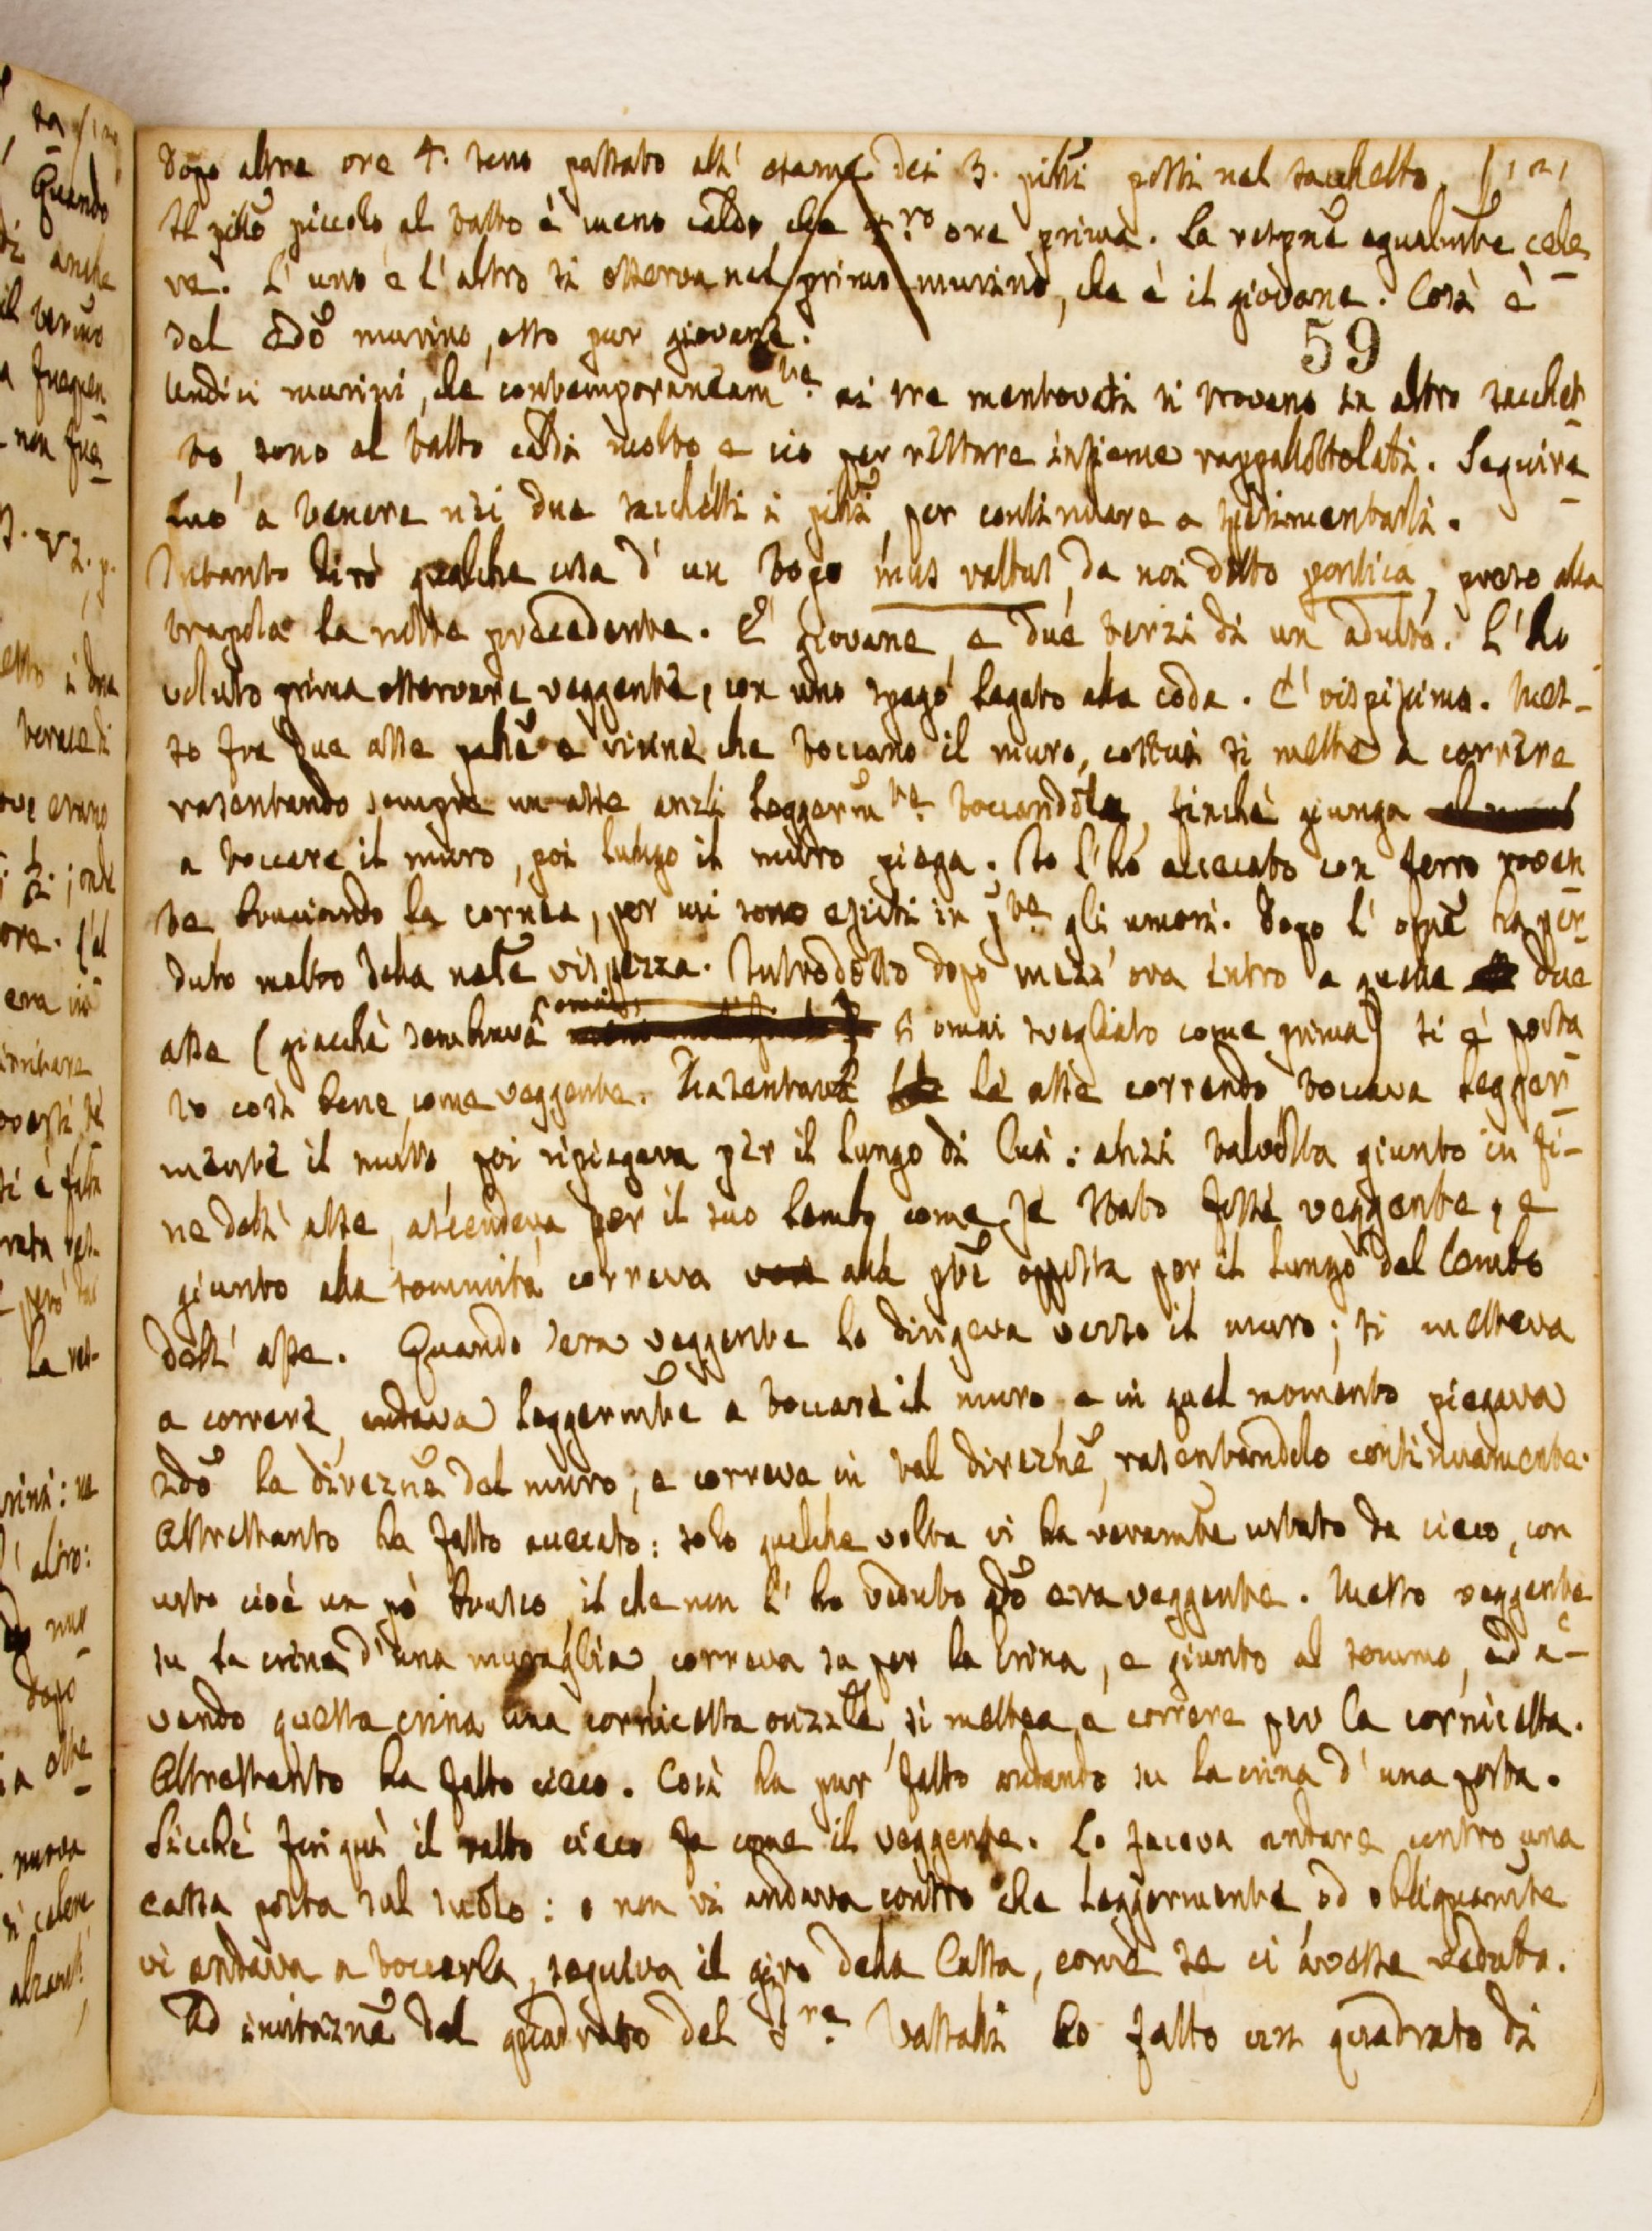 Dopo altre ore 4. sono passato all' esame dei 3. pilli posti nel sacchetto. (121
Il pillo piccolo al tatto è meno caldo che 4.ro ore prima. La respne egualmte cele
re. L' uno e l' altro si osserva nel primo murino, che è il giovane. Così è
del 2do murino, esso pur giovane.
59
Undici murini, che contemporaneamte ai tre mentovati si trovano in altro sacchet
to, sono al tatto caldi molto, e ciò per restare insieme rappallottolati. Seguire
mo a tenere nei due sacchetti i pilli, per continuare a sperimentarli.
Intanto dirò qualche cosa d' un topo mus rattus, da noi detto pontica, preso alla
trapola la notte precedente. E' giovane, e due terzi di un adulto. L' ho
voluto prima osservare veggente, con uno spago legato alla coda. E' vispissimo. Mes-
so fra due asse vicine che toccano il muro, costui si mette a correre
rasentando sempre un asse anzi leggermte toccandola, finchè giunga
a toccare il muro, poi lungo il muro piega. Io l' ho accecato con ferro roven
te bruciando la cornea, per cui sono esciti in pte gli umori. Dopo l' opne ha per
duto molto della nale vispezza. Introdotto dopo mezz' ora entro a quelle due
asse (giacchè sembrava si omai svegliato come prima) si è porta
to così bene come veggente. Rasentava le asse correndo toccava legger
mente il muro, poi ripiegava per il lungo di lui: anzi talvolta giunto in fi-
ne dell' asse, ascendeva per il suo lembo come se stato fosse veggente, e
giunto alla sommità correva alla pte opposta per il lungo del lembo
dell' asse. Quando era veggente lo dirigeva verso il muro; si metteva
a correre, andava leggermte a toccare il muro, e in quel momento piegava
2do la direzne del muro, e correva in tal direzne, rasentandolo continuamente.
Altrettanto ha fatto accecato: solo qualche volta vi ha veramte urtato da cieco, con
urto cioè un pò brusco, il che non l' ho veduto qdo era veggente. Messo veggente
su la crina d' una muraglia, correva su per la crina, e giunto al sommo, ed a-
vendo questa crina una cornicetta orizzle, si mettea a correre per la cornicetta.
Altrettanto ha fatto cieco. Così ha pur fatto andando su la crina d' una porta.
Sicchè fin quì il ratto cieco fa come il veggente. Lo faceva andare contro una
cassa posta sul suolo: o non vi andava contro che leggermente, od obliquamte
vi andava a toccarla, seguiva il giro della cassa, come se ci avesse veduto.
Ad imitazne del quadrato del Dre Vassalli ho fatto un quadrato di